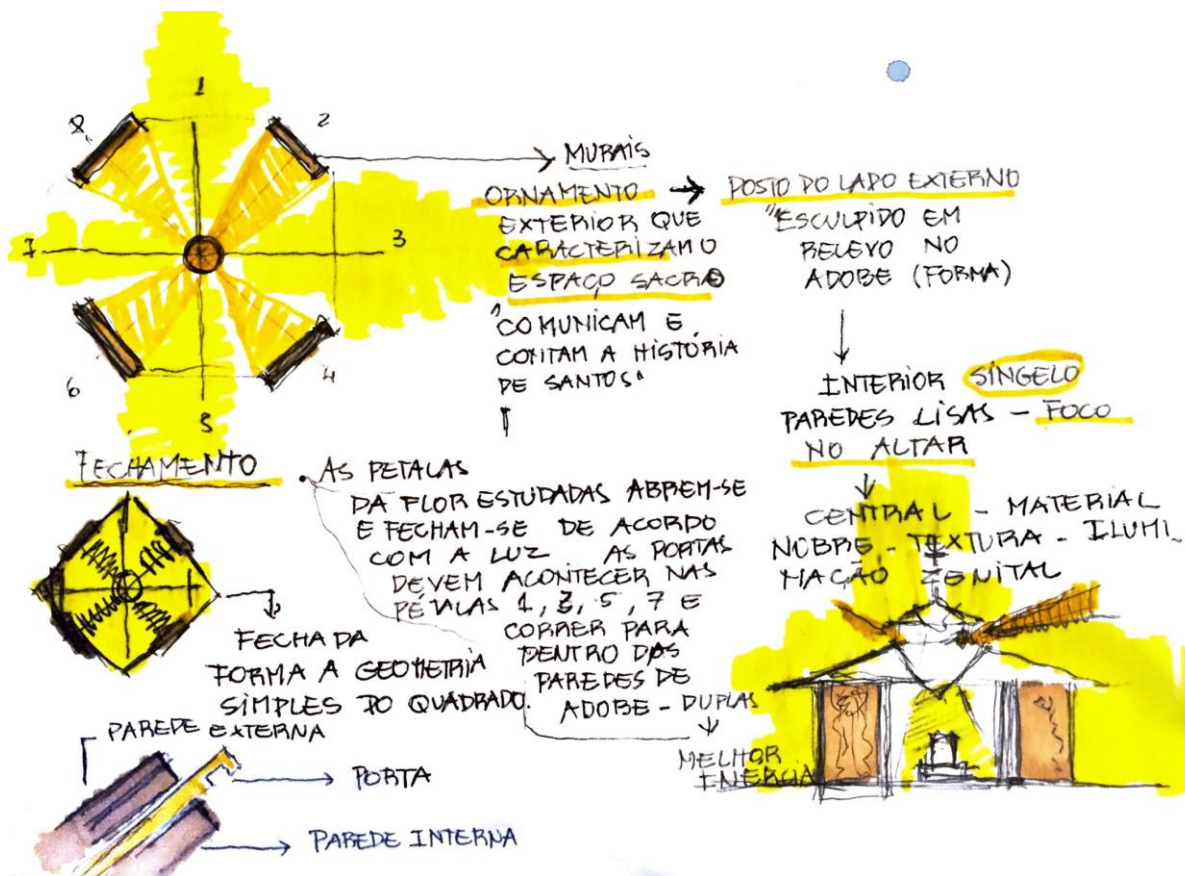 1
8
2
7
3
6
4
5
MURAIS
ORNAMENTO
EXTERIOR QUE
CARACTERIZAM O
ESPAÇO SACRO
"COMUNICAM E
CONTAM A HISTÓRIA
DE SANTOS"
POSTO DO LADO EXTERNO
"ESCULPIDO EM
RELEVO NO
ADOBE (FORMA)
INTERIOR SINGELO
PAREDES LISAS - FOCO
NO ALTAR
CENTRAL - MATERIAL
NOBRE - TEXTURA - ILUMI
NAÇÃO ZENITAL
FECHAMENTO
• AS PETALAS
DA FLOR ESTUDADAS ABREM-SE
E FECHAM-SE DE ACORDO
COM A LUZ AS PORTAS
DEVEM ACONTECER NAS
PÉTALAS 1, 3, 5, 7 E
CORRER PARA
DENTRO DAS
PAREDES DE
ADOBE - DUPLAS
MELHOR
INERCIA
FECHADA
FORMA A GEOMETRIA
SIMPLES DO QUADRADO.
PAREDE EXTERNA
PORTA
PAREDE INTERNA